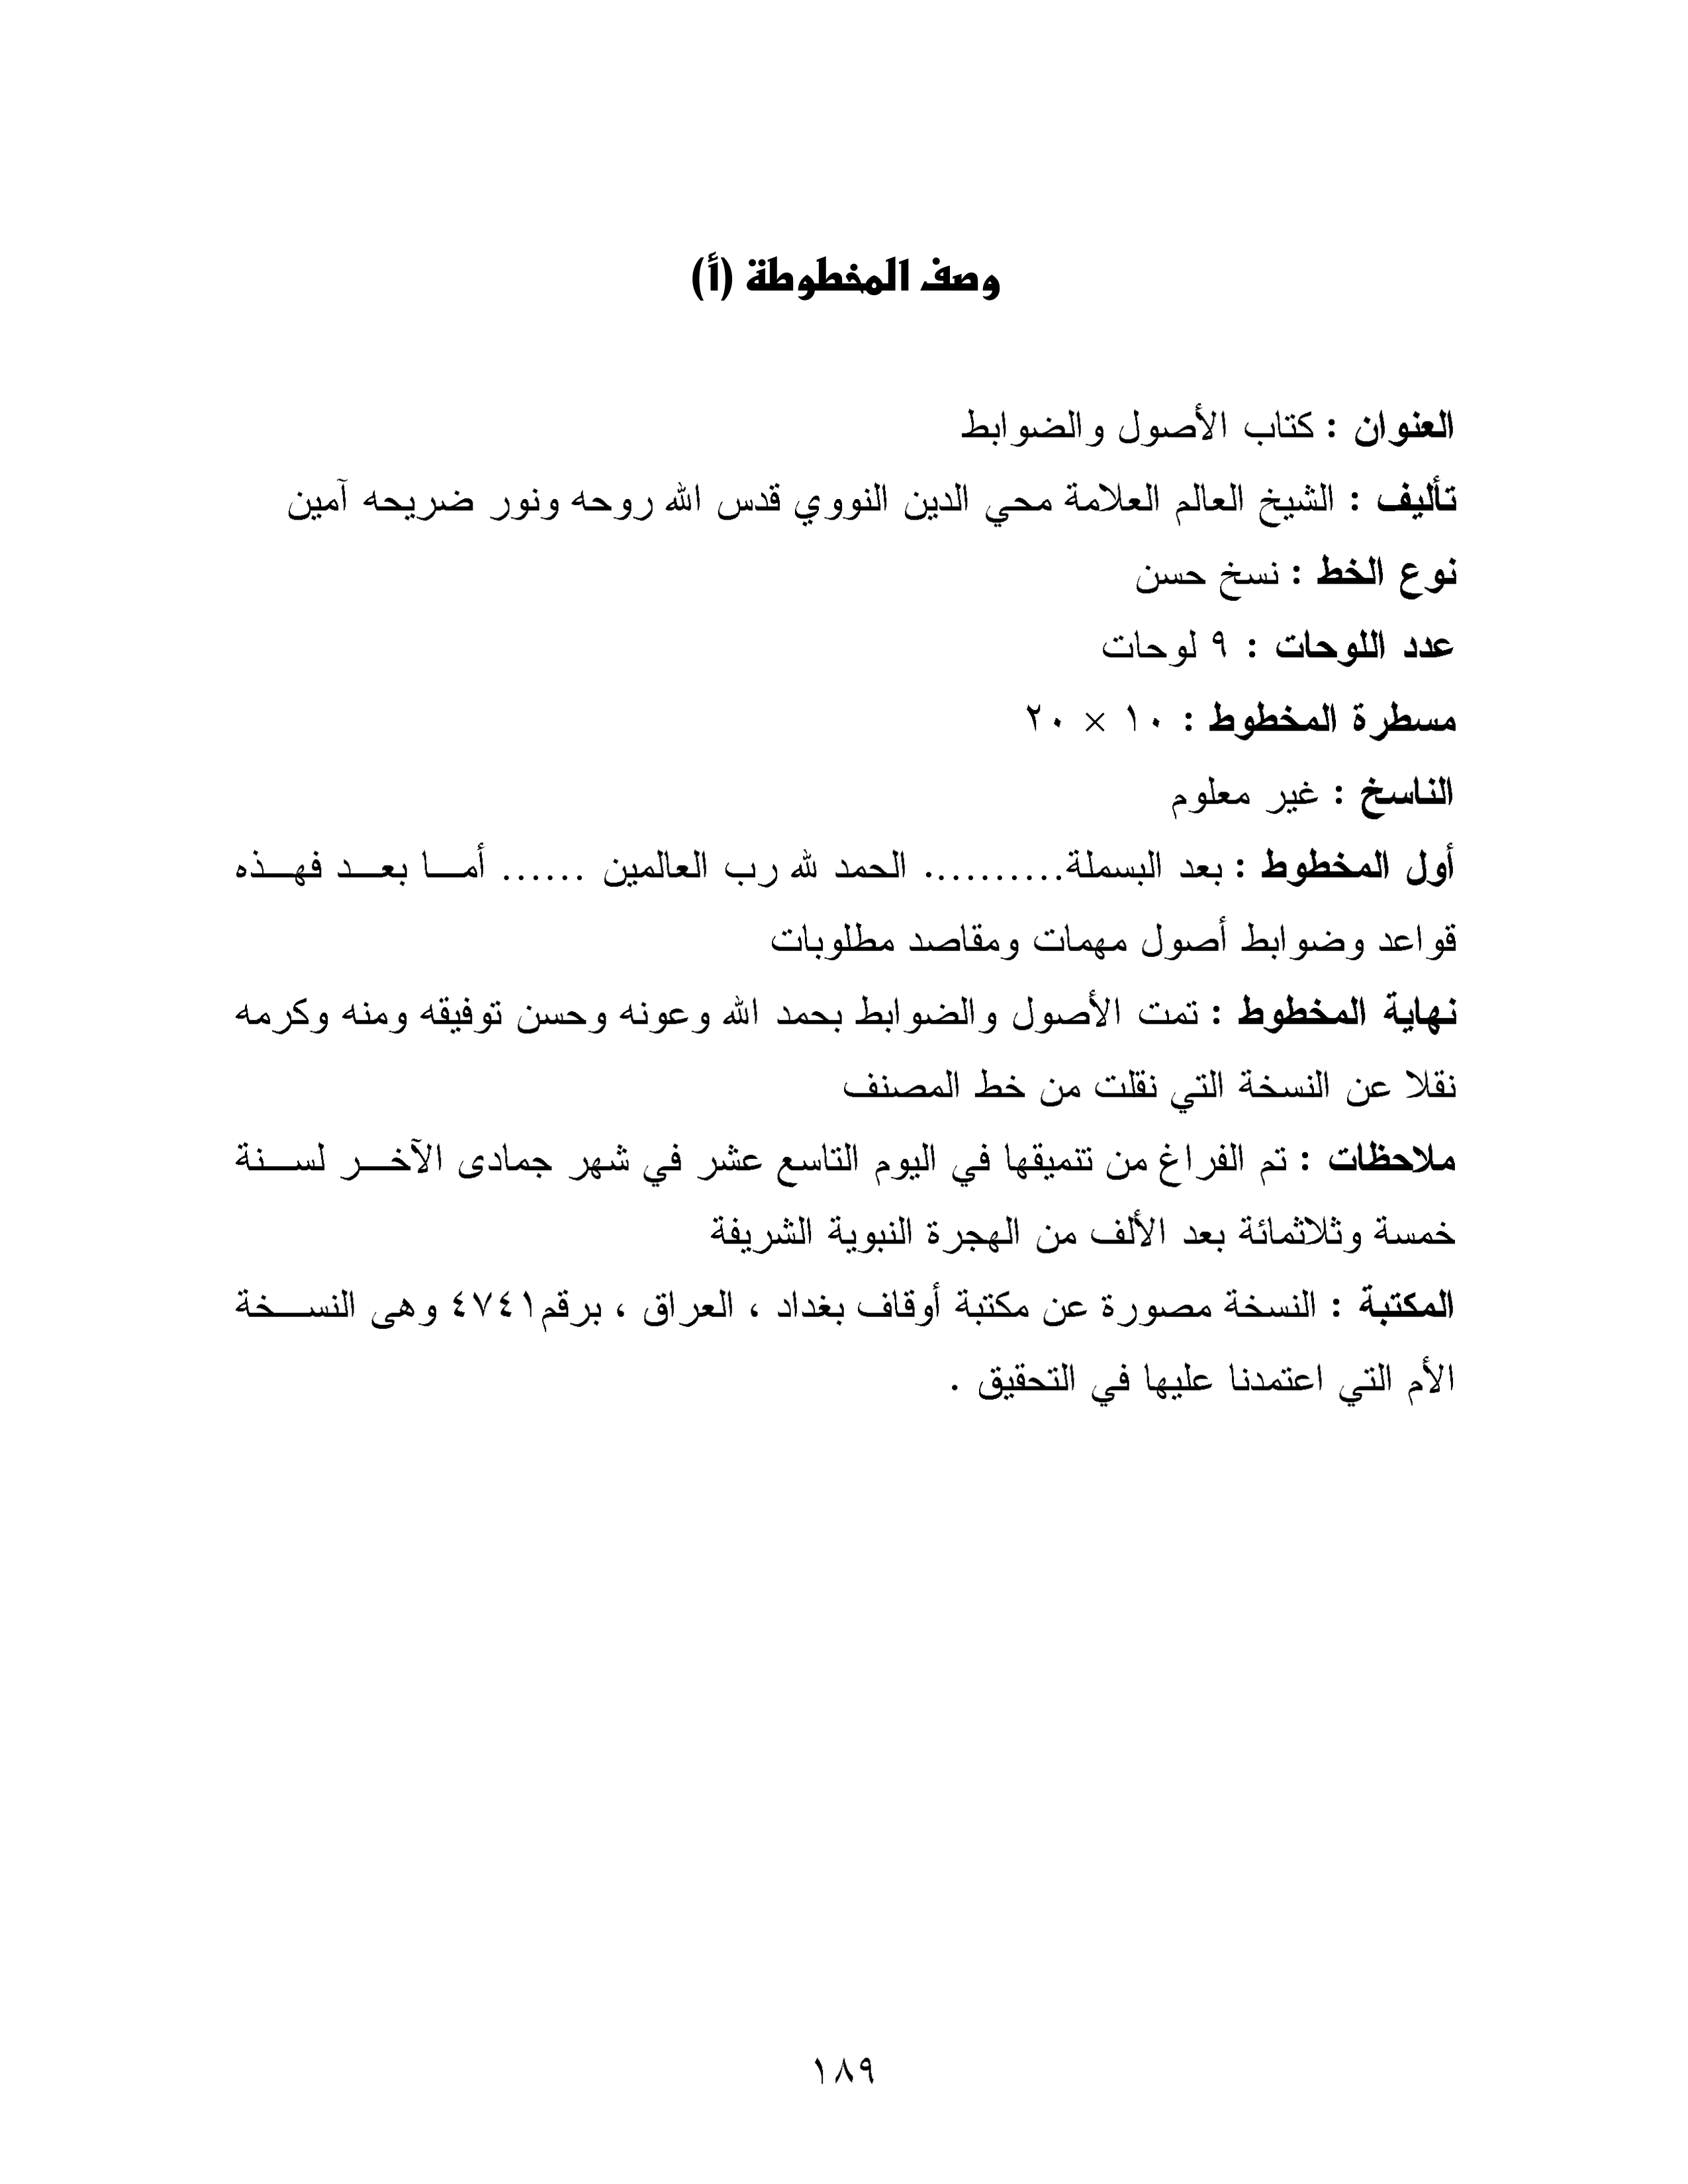 وصف المخطوطة (أ)
العنوان : كتاب الأصول والضوابط
تأليف : الشيخ العالم العلامة محي الدين النووي قدس الله روحه ونور ضريحه آمين
نوع الخط : نسخ حسن
عدد اللوحات : ٩ لوحات
مسطرة المخطوط : ١٠ × ٢٠
الناسخ : غير معلوم
أول المخطوط : بعد البسملة.......... الحمد لله رب العالمين ...... أمـــا بعـــد فهـــذه
قواعد وضوابط أصول مهمات ومقاصد مطلوبات
نهاية المخطوط : تمت الأصول والضوابط بحمد الله وعونه وحسن توفيقه ومنه وكرمه
نقلا عن النسخة التي نقلت من خط المصنف
ملاحظات : تم الفراغ من تتميقها في اليوم التاسع عشر في شهر جمادى الآخـــر لســـنة
خمسة وثلاثمائة بعد الألف من الهجرة النبوية الشريفة
المكتبة : النسخة مصورة عن مكتبة أوقاف بغداد ، العراق ، برقم٤٧٤١ وهى النســـخة
الأم التي اعتمدنا عليها في التحقيق .
١٨٩